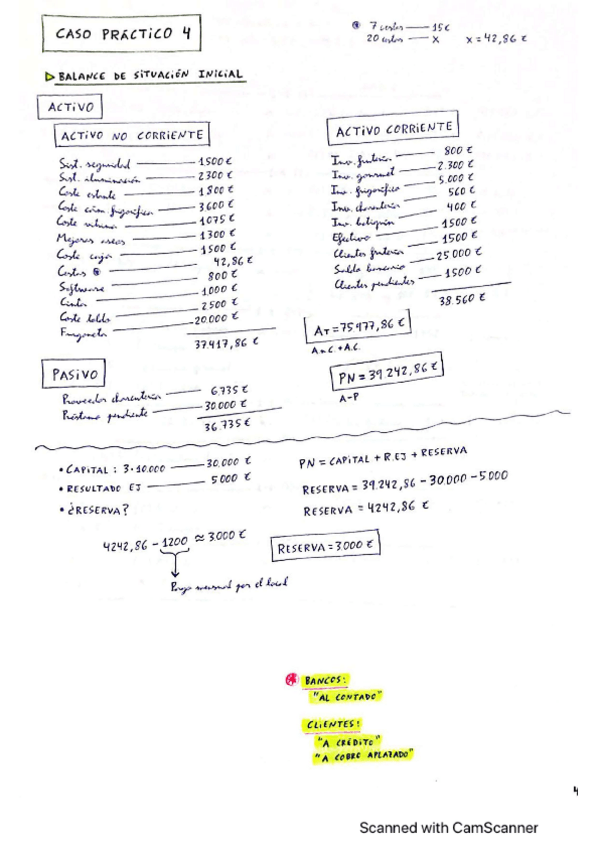 CASO PRÁCTICO 4
⊛ 7 cestas — 15€
20 cestas — x x = 42,86 €
▷ BALANCE DE SITUACIÓN INICIAL
ACTIVO
ACTIVO NO CORRIENTE
Sist. seguridad — 1500 €
Sist. aluminación — 2300 €
Coste estante — 1800 €
Coste cám. frigorífica — 3600 €
Coste vitrina — 1075 €
Mejoras aseos — 1300 €
Coste cajas — 1500 €
Cestas ⊛ — 42,86 €
Software — 800 €
Cinta — 1.000 €
Coste toldo — 2500 €
Furgoneta — 20.000 €
37.417,86 €
ACTIVO CORRIENTE
Inv. frutería — 800 €
Inv. gourmet — 2.300 €
Inv. frigorífico — 5.000 €
Inv. charcutería — 560 €
Inv. botiquín — 400 €
Efectivo — 1500 €
Clientes frutería — 1500 €
Saldo bancario — 25 000 €
Clientes pendientes — 1500 €
38.560 €
AT = 75977,86 €
A.n.C. + A.C.
PN = 39 242,86 €
A-P
PASIVO
Proveedores charcutería — 6.735 €
Préstamo pendiente — 30.000 €
36.735 €
• CAPITAL: 3·10.000 — 30.000 €
• RESULTADO EJ — 5000 €
• ¿RESERVA?
PN = CAPITAL + R.EJ + RESERVA
RESERVA = 39.242,86 - 30.000 - 5000
RESERVA = 4242,86 €
4242,86 - 1200 ≈ 3000 €
RESERVA = 3000 €
Pago mensual por el local
BANCOS:
"AL CONTADO"
CLIENTES:
"A CRÉDITO"
"A COBRO APLAZADO"
4
Scanned with CamScanner